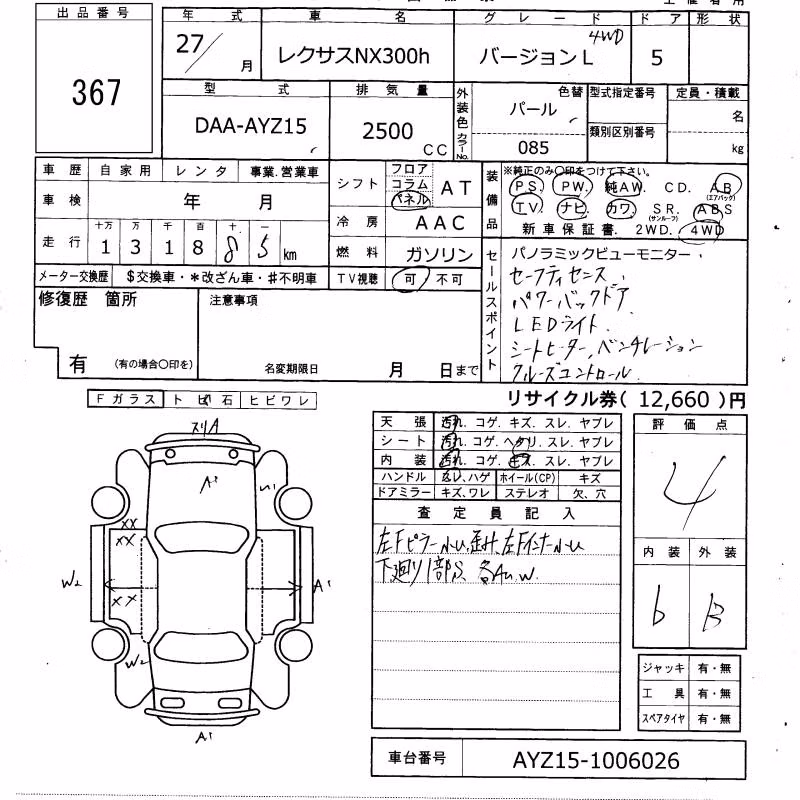 出品番号
367
年式
27/ 月
車名
レクサスNX300h
グレード
バージョンL 4WD
ドア
5
形状
型式
DAA-AYZ15
排気量
2500 CC
外装色 カラーNo.
色替
パール
085
型式指定番号
類別区別番号
定員・積載
名
kg
車歴 自家用 レンタ 事業.営業車
車検 年 月
走行 十万 万 千 百 十 一
1 3 1 8 8 5 km
メーター交換歴 $交換車・*改ざん車・♯不明車
シフト フロア コラム パネル AT
冷房 AAC
燃料 ガソリン
TV視聴 可 不可
装備品
※純正のみ〇印をつけて下さい。
PS. PW. 純AW. CD. AB
(エアバック)
TV. ナビ. カワ. SR. ABS
(サンルーフ)
新車保証書. 2WD. 4WD
セールスポイント
パノラミックビューモニター,
セーフティセンス,
パワーバックドア
LEDライト.
シートヒーター,ベンチレーション
クルーズコントロール.
修復歴 箇所
有 (有の場合〇印を)
注意事項
名変期限日 月 日まで
リサイクル券( 12,660 )円
Fガラス トビ石 ヒビワレ
スリA
A1
U1
XX
XX
W2
XX
A1
W2
A1
天張 汚れ. コゲ. キズ. スレ. ヤブレ
シート 汚れ. コゲ. ヘタリ. スレ. ヤブレ
内装 汚れ. コゲ. キズ. スレ. ヤブレ
ハンドル スレ、ハゲ ホイール(CP) キズ
ドアミラー キズ、ワレ ステレオ 欠、穴
査定員記入
左Fピラー小U,歪み,左Fインナー小U
下廻り1部S 各AU.W.
評価点
4
内装 外装
6 B
ジャッキ 有・無
工具 有・無
スペアタイヤ 有・無
車台番号
AYZ15-1006026